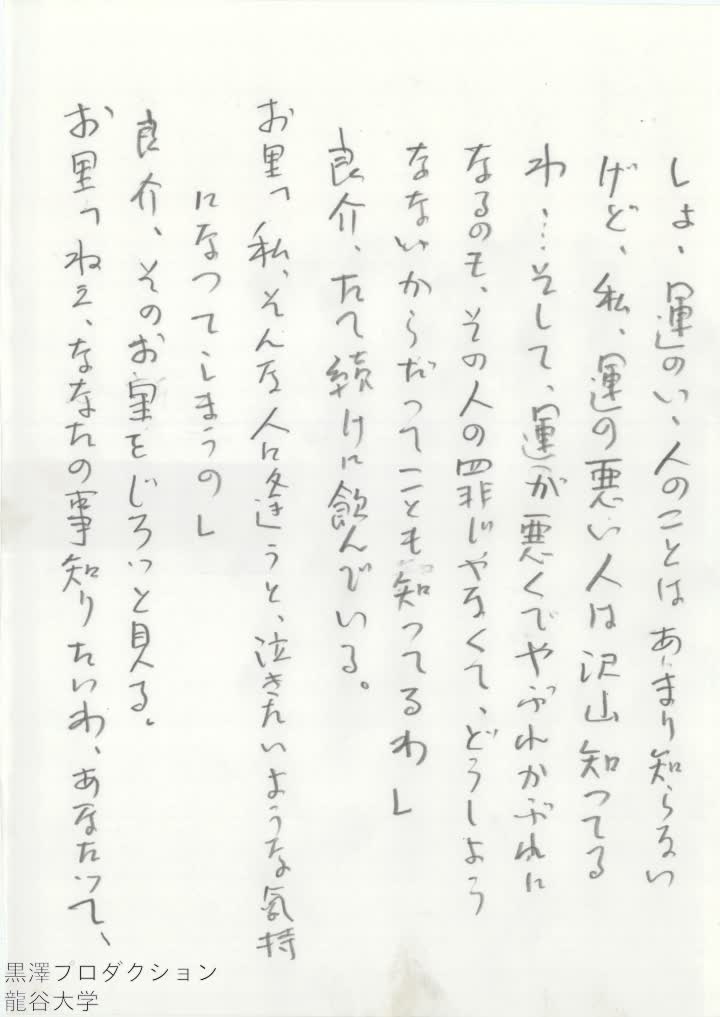 しよ、運のいゝ人のことはあんまり知らない
けど、私、運の悪い人は沢山知つてる
わ……そして、運が悪くてやぶれかぶれに
なるのも、その人の罪じやなくて、どうしよう
もないからだつてことも知つてるわ」
良介、たて続けに飲んでいる。
お里「私、そんな人に逢うと、泣きたいような気持
になつてしまうの」
良介、そのお里をじろつと見る。
お里「ねえ、あなたの事知りたいわ、あなたつて、
黒澤プロダクション
龍谷大学